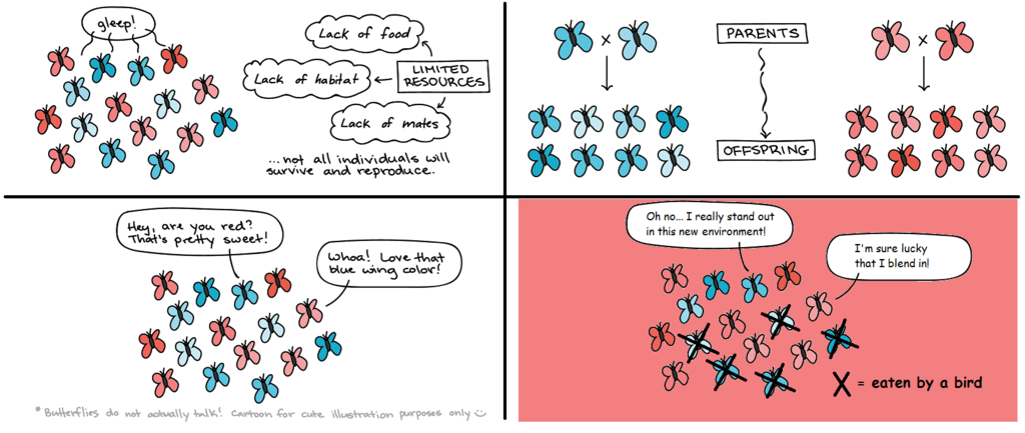 gleep!
Lack of food
Lack of habitat
LIMITED
RESOURCES
Lack of mates
...not all individuals will
survive and reproduce.
x
PARENTS
x
OFFSPRING
Hey, are you red?
That's pretty sweet!
Whoa! Love that
blue wing color!
* Butterflies do not actually talk! Cartoon for cute illustration purposes only
Oh no... I really stand out
in this new environment!
I'm sure lucky
that I blend in!
X = eaten by a bird